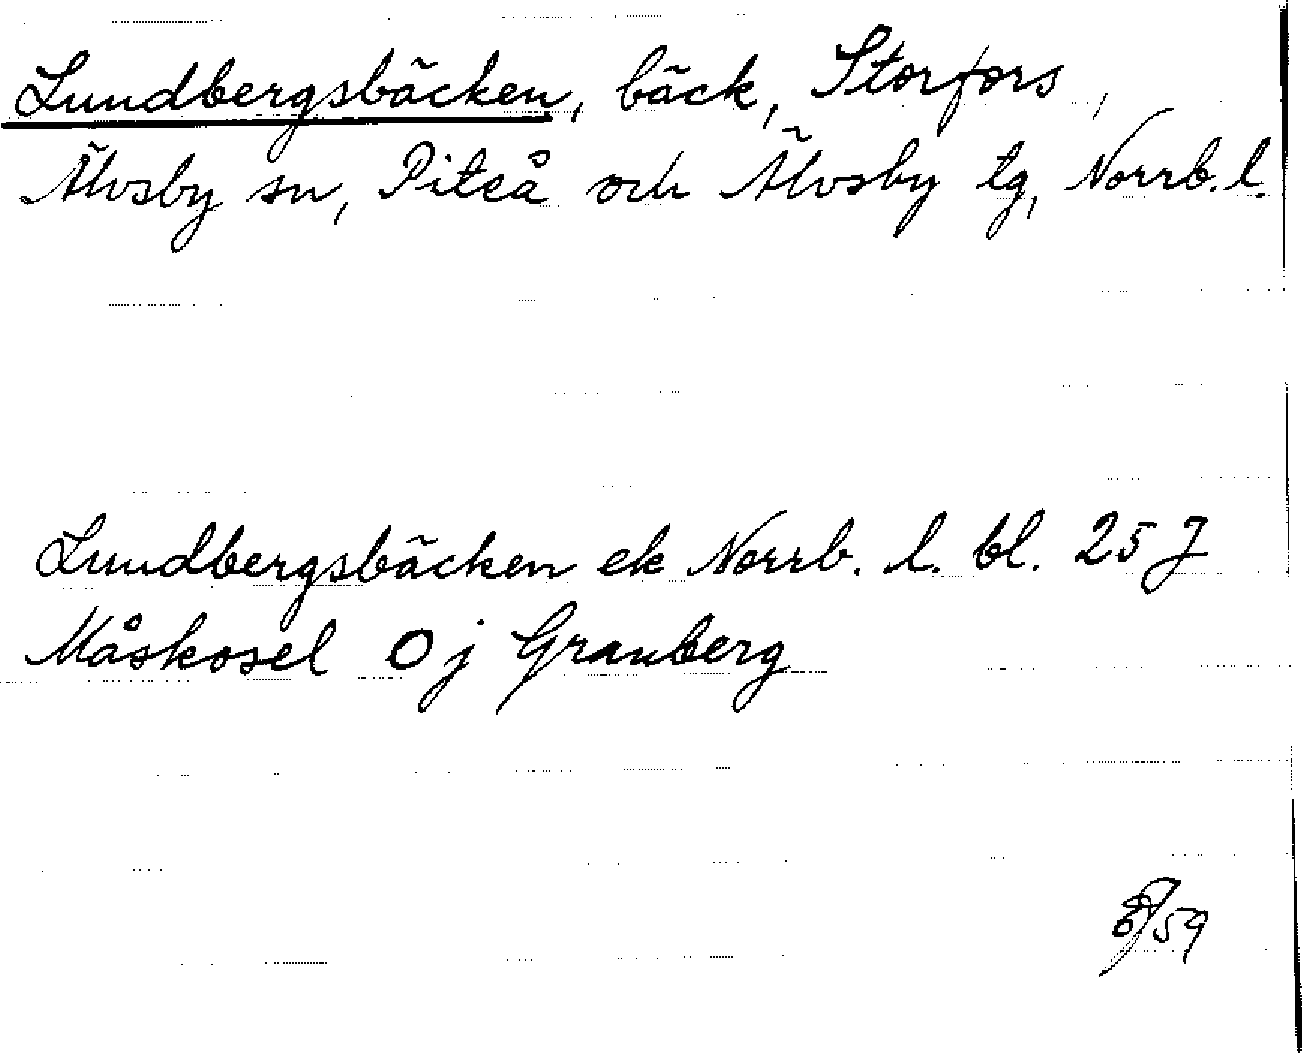 Lundbergsbäcken, bäck, Storfors,
Älvsby sn, Piteå och Älvsby tg, Norrb. l.
Lundbergsbäcken ek Norrb. l. bl. 25 J
Måskosel O j Granberg